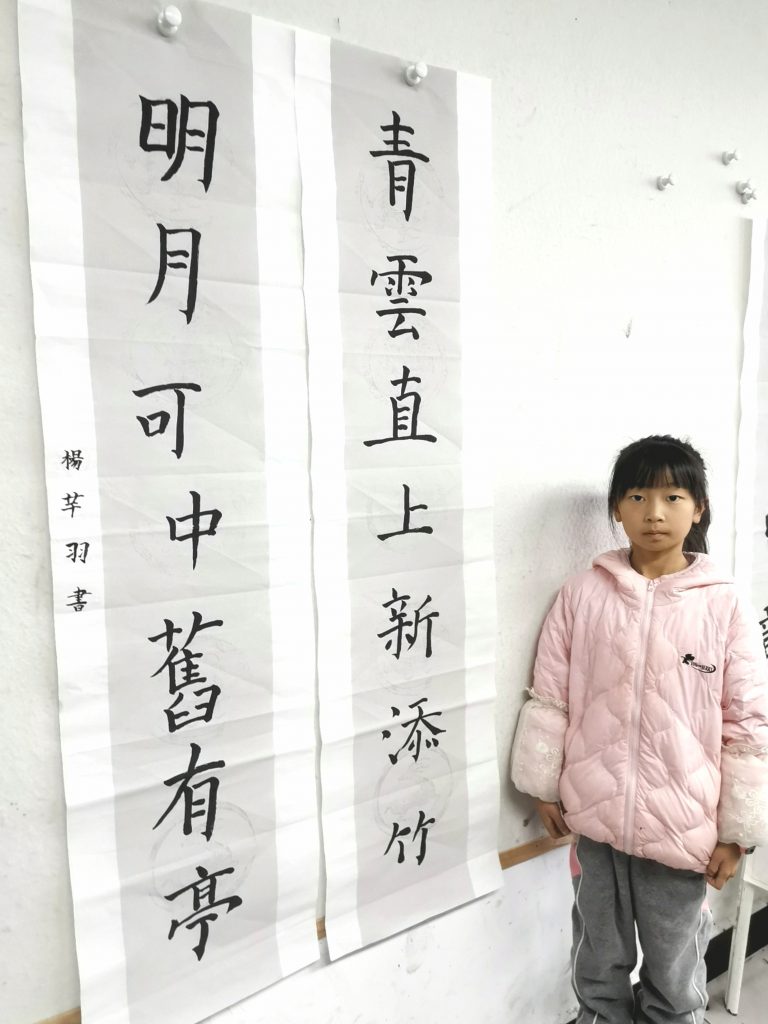 青雲直上新添竹
明月可中舊有亭
楊芊羽書